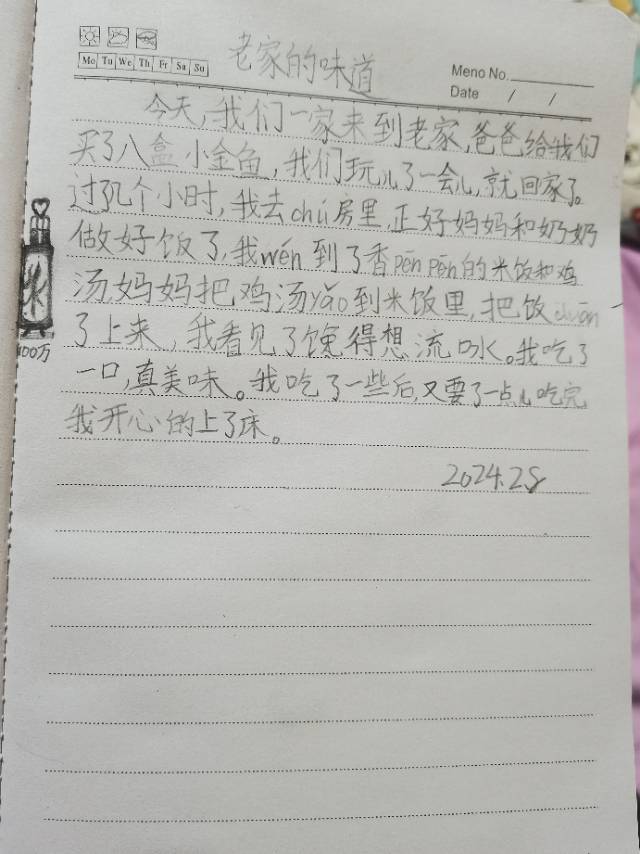 老家的味道
Mo Tu We Th Fr Sa Su
Memo No.
Date / /
今天,我们一家来到老家,爸爸给我们
买了八盒小金鱼,我们玩儿了一会儿,就回家了。
过了几个小时,我去chú房里,正好妈妈和奶奶
做好饭了,我wén到了香pēn pēn的米饭和鸡
汤,妈妈把鸡汤yǎo到米饭里,把饭
了上来,我看见了馋得想流口水。我吃了
一口,真美味。我吃了一些后,又要了一点儿吃完
我开心的上了床。
2024.2.8
100万